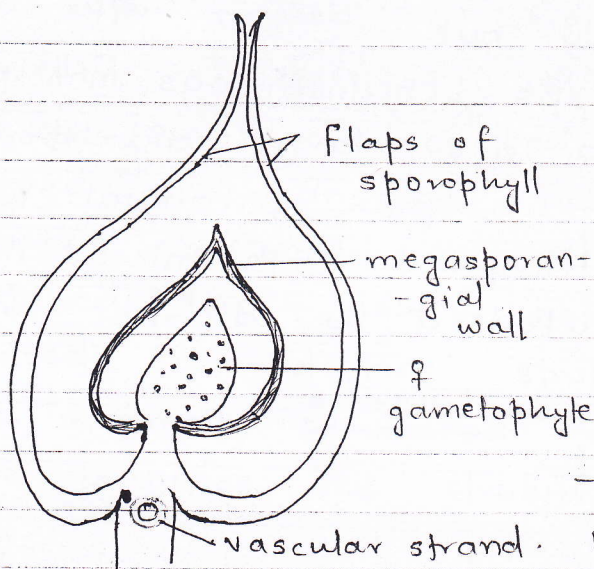 Flaps of
sporophyll
megasporan-
-gial
wall
♀
gametophyte
vascular strand.